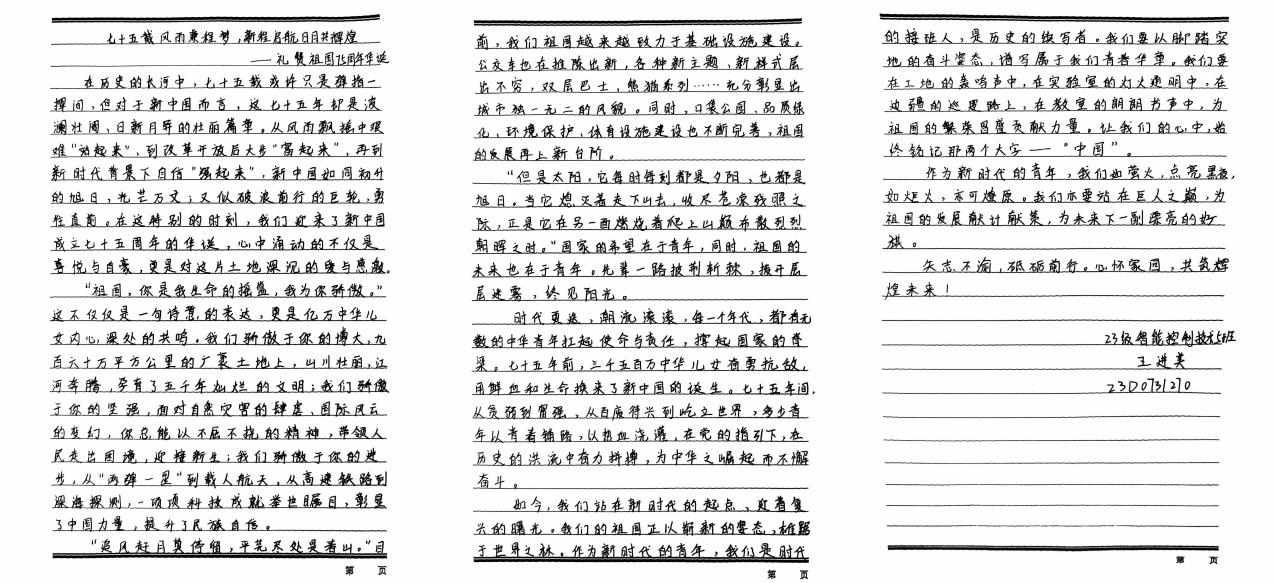 七十五载风雨兼程梦，新程启航日月共辉煌
——礼赞祖国75周年华诞
在历史的长河中，七十五载或许只是弹指一
挥间，但对于新中国而言，这七十五年却是波
澜壮阔、日新月异的壮丽篇章。从风雨飘摇中艰
难“站起来”，到改革开放后大步“富起来”，再到
新时代背景下自信“强起来”，新中国如同初升
的旭日，光芒万丈；又似破浪前行的巨轮，勇
往直前。在这特别的时刻，我们迎来了新中国
成立七十五周年的华诞，心中涌动的不仅是
喜悦与自豪，更是对这片土地深沉的爱与感激。
“祖国，你是我生命的摇篮，我为你骄傲。”
这不仅仅是一句诗意的表达，更是亿万中华儿
女内心深处的共鸣。我们骄傲于你的博大，九
百六十万平方公里的广袤土地上，山川壮丽，江
河奔腾，孕育了五千年灿烂的文明；我们骄傲
于你的坚强，面对自然灾害的肆虐、国际风云
的变幻，你总能以不屈不挠的精神，带领人
民走出困境，迎接新生；我们骄傲于你的进
步，从“两弹一星”到载人航天，从高速铁路到
深海探测，一项项科技成就举世瞩目，彰显
了中国力量，提升了民族自信。
“追风赶月莫停留，平芜尽处是春山。”目
第 页
前，我们祖国越来越致力于基础设施建设。
公交车也在推陈出新，各种新主题、新样式层
出不穷，双层巴士，熊猫系列……充分彰显出
城市独一无二的风貌。同时，口袋公园、品质绿
化、环境保护、体育设施建设也不断完善，祖国
的发展再上新台阶。
“但是太阳，它每时每刻都是夕阳，也都是
旭日。当它熄灭着走下山去，收尽苍凉残照之
际，正是它在另一面燃烧着爬上山巅布散烈烈
朝晖之时。”国家的希望在于青年，同时，祖国的
未来也在于青年。先辈一路披荆斩棘，拨开层
层迷雾，终见阳光。
时代更迭，潮流滚滚，每一个年代，都有无
数的中华青年扛起使命与责任，撑起国家的脊
梁。七十五年前，三千五百万中华儿女奋勇抗敌，
用鲜血和生命换来了新中国的诞生。七十五年间，
从贫弱到富强，从百废待兴到屹立世界，多少青
年以青春铺路，以热血浇灌，在党的指引下，在
历史的洪流中奋力拼搏，为中华之崛起而不懈
奋斗。
如今，我们站在新时代的起点，迎着复
兴的曙光。我们的祖国正以崭新的姿态，雄踞
于世界之林。作为新时代的青年，我们是时代
第 页
的接班人，是历史的续写者。我们要以脚踏实
地的奋斗姿态，谱写属于我们青春华章。我们要
在工地的轰鸣声中，在实验室的灯火通明中，在
边疆的巡逻路上，在教室的朗朗书声中，为
祖国的繁荣昌盛贡献力量。让我们的心中，始
终铭记那两个大字——“中国”。
作为新时代的青年，我们如萤火，点亮黑夜，
如炬火，亦可燎原。我们亦要站在巨人之巅，为
祖国的发展献计献策，为未来下一副漂亮的好
棋。
矢志不渝，砥砺前行。心怀家国，共筑辉
煌未来！
23级智能控制技术5班
王进美
23D0731270
第 页